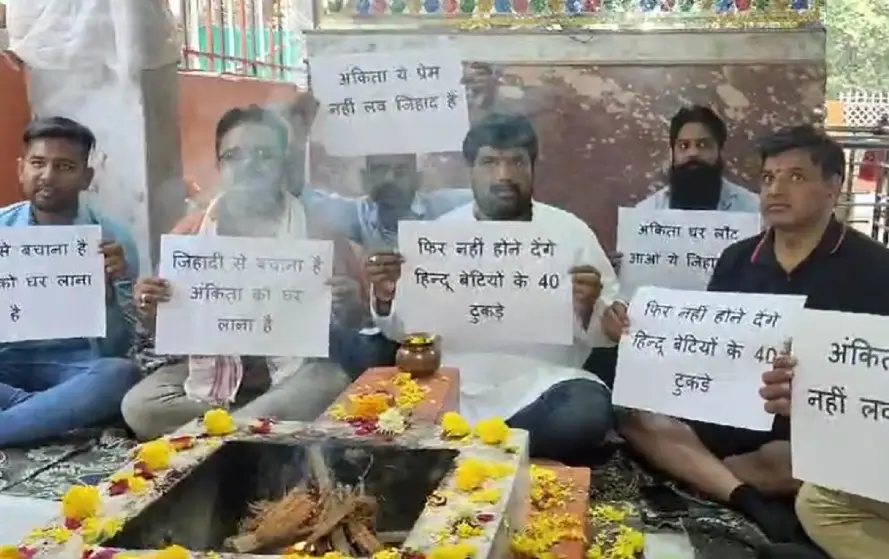 अंकिता ये प्रेम
नहीं लव जिहाद हैं
से बचाना है
को घर लाना
है
जिहादी से बचाना है
अंकिता को घर
लाना है
फिर नहीं होने देंगे
हिन्दू बेटियों के 40
टुकड़े
अंकिता घर लौट
आओ ये
फिर नहीं होने देंगे
हिन्दू बेटियों के 40
टुकड़े
नहीं